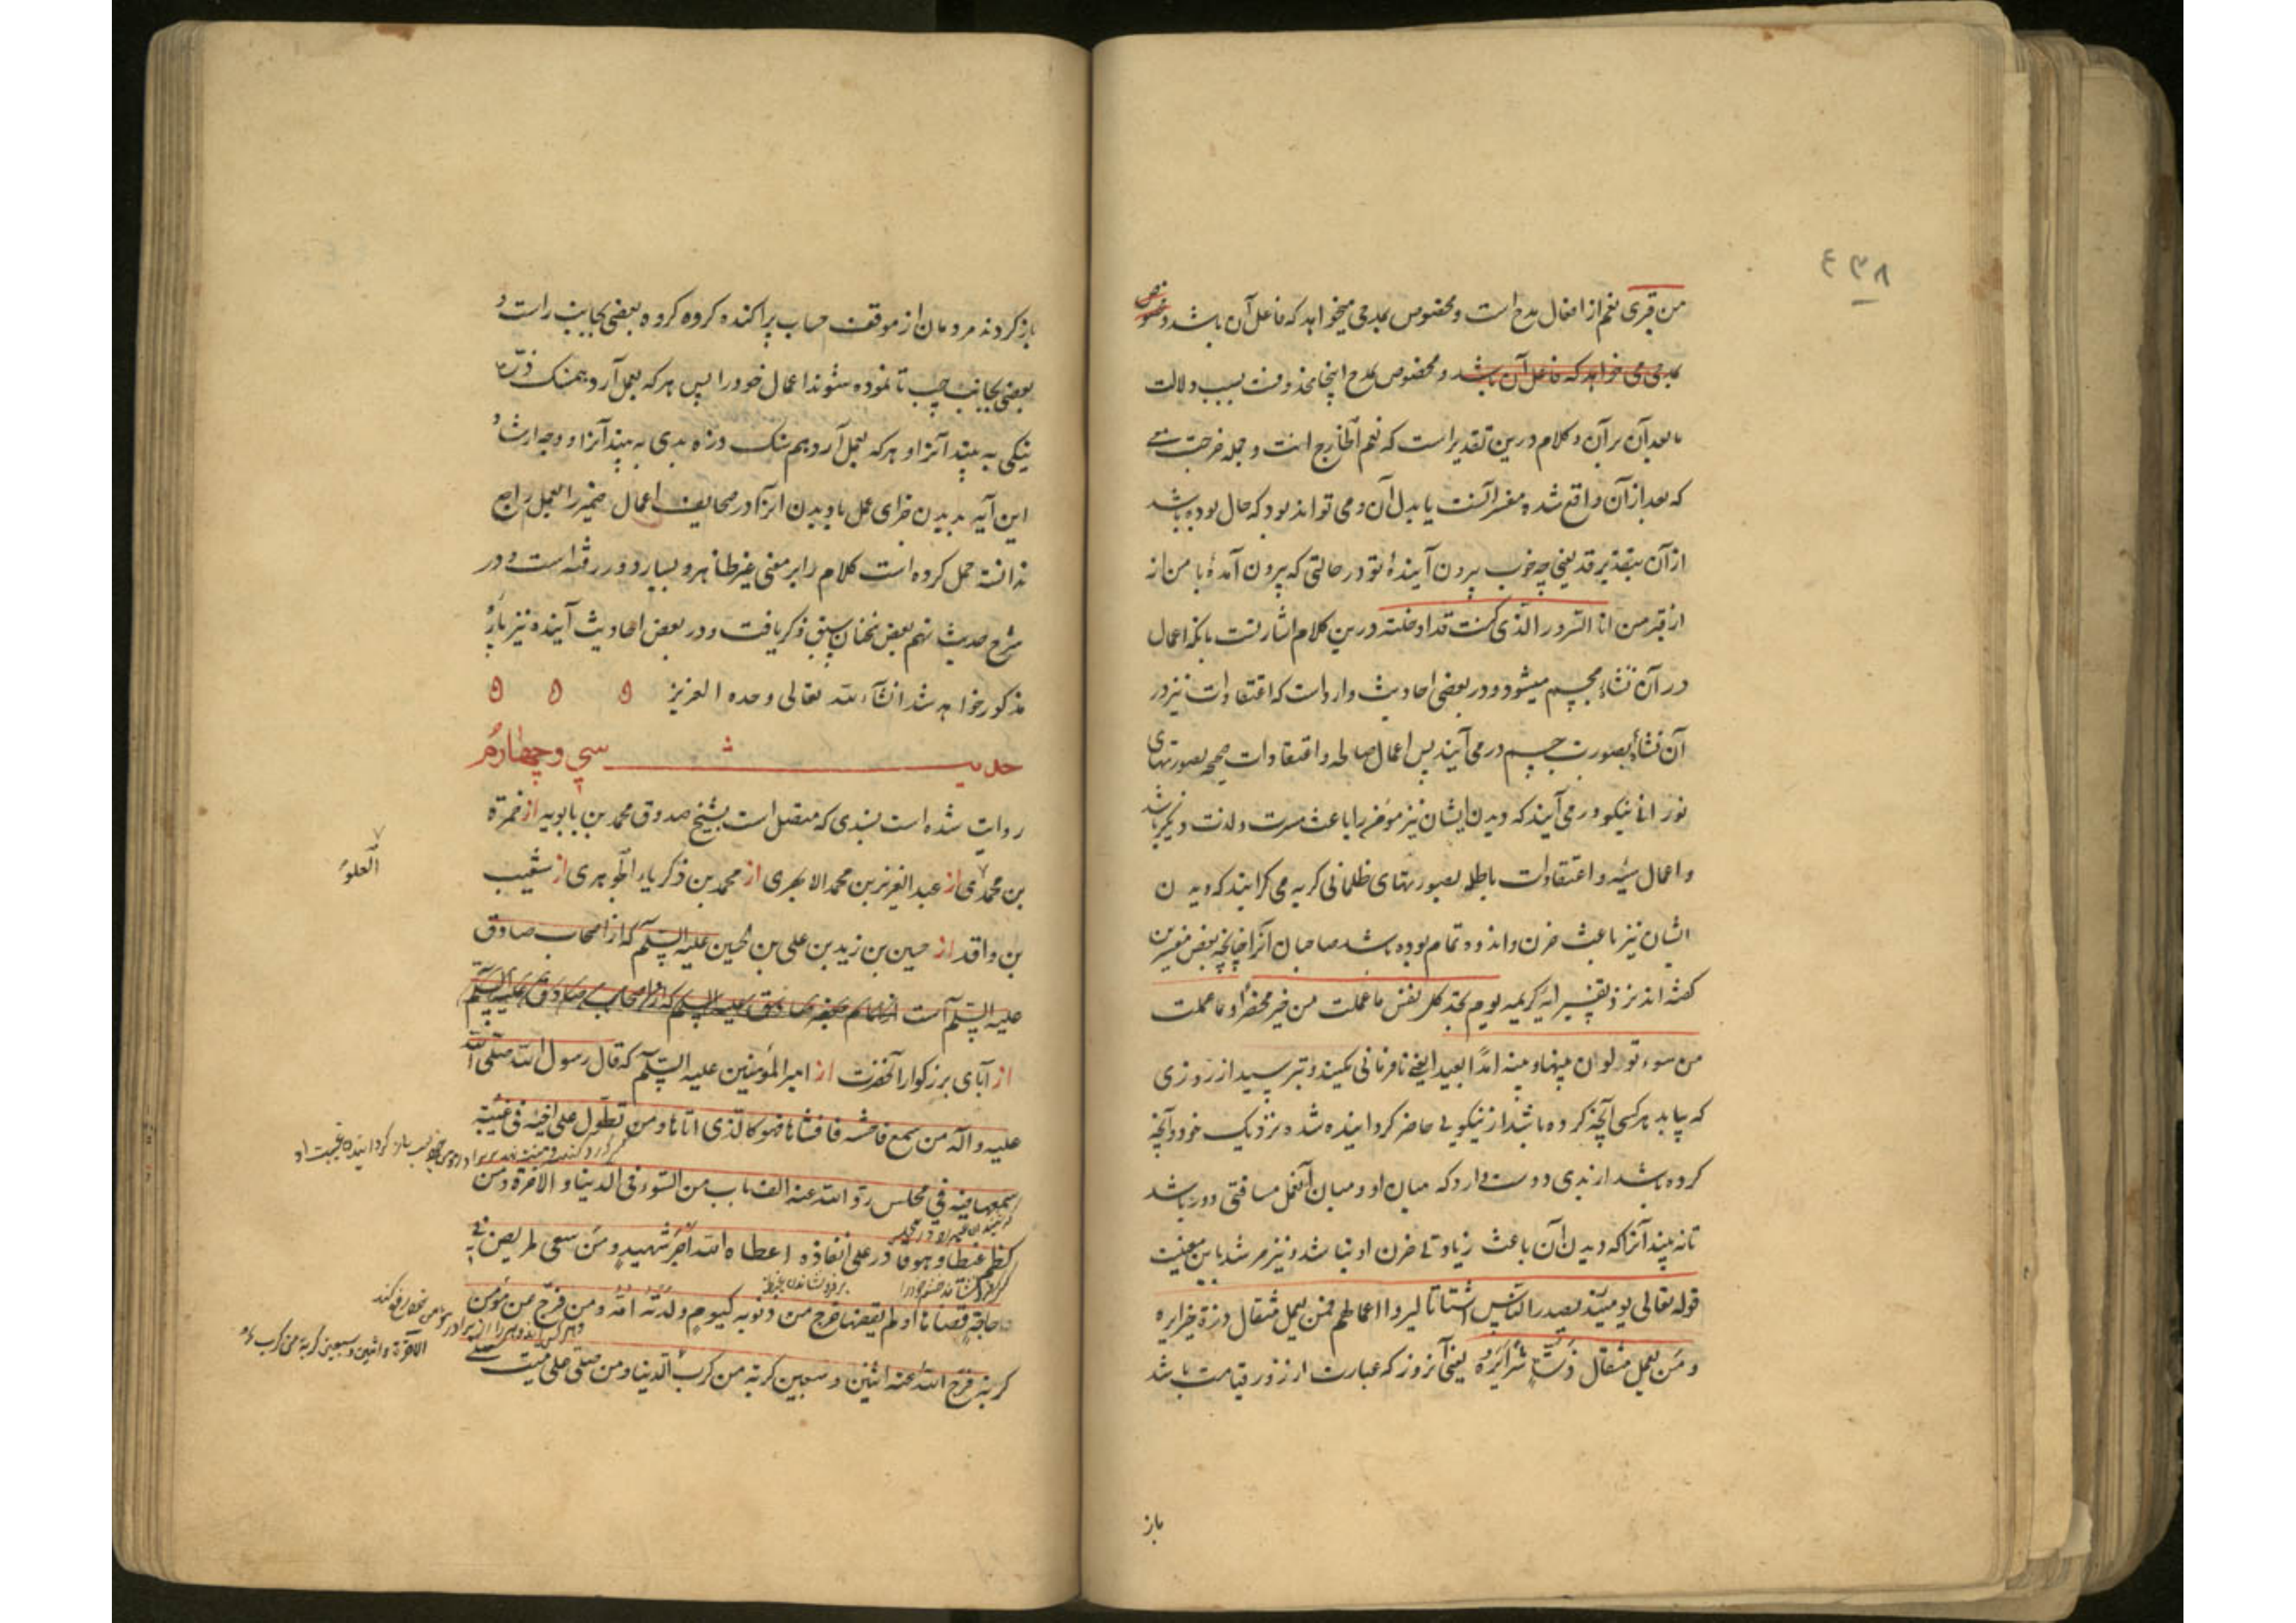 ٤٣٨
من قبری نعم از افعال مدح است و مخصوص بمدحی میخواهد که فاعل آن باشد و
بمدحی می خواهد که فاعل آن باشد و مخصوص بمدح اینجا محذوفست بسبب دلالت
مابعد آن بر آن و کلام درین تقدیر است که نعم الخارج انت و جمله خرجت معی
که بعد از آن واقع شده مفسر آنست یا بدل آن و می تواند بود که حال بوده باشد
از آن بتقدیر قد یعنی چه خوب بیرون آینده تو در حالتی که بیرون آمدهٔ با من از
از قبر من انا السرور الذی کنت قد ادخلته درین کلام اشارتست بانکه اعمال
در آن نشاء مجسم میشود و در بعضی احادیث وارد است که اعتقادات نیز در
آن نشاء بصورت جسم در می آیند پس اعمال صالحه و اعتقادات صحیحه بصورتهای
نورانی نیکو در می آیند که دیدن ایشان نیز مؤمن را باعث مسرت و لذت و
و اعمال سیئه و اعتقادات باطله بصورتهای ظلمانی کریه می کرایند که دیدن
ایشان نیز باعث حزن و اندوه تمام بوده باشد صاحبان آنرا چنانچه بعض مفسرین
کفته اند نزد تفسیر آیه کریمه یوم تجد کل نفس ما عملت من خیر محضرا و ما عملت
من سوء تود لو ان بینها و بینه امدا بعیدا یعنی نافرمانی مکنید و بترسید از روزی
که بیابد هر کسی آنچه کرده باشد از نیکویی حاضر کردانیده شده نزدیک خود و آنچه
کرده باشد از بدی دوست دارد که میان او و میان آنعمل مسافتی دور باشد
تا نه بیند آنرا که دیدن آن باعث زیادتی حزن او نباشد و نیز مرشد باین معنیست
قوله تعالی یومئذ یصدر الناس اشتاتا لیروا اعمالهم فمن یعمل مثقال ذرة خیرا یره
و من یعمل مثقال ذرة شرا یره یعنی آنروز که عبارت از روز قیامت باشد
باز
باز کردند مردمان از موقف حساب پراکنده کروه کروه بعضی بجانب راست و
بعضی بجانب چپ تا نموده شوند اعمال خود را پس هر که بعمل آرد همسنک ذرهٔ
نیکی به بیند آنرا و هر که بعمل آرد هم سنک ذره بدی به بیند آنرا و
این آیه بدیدن جزای عمل یا دیدن آنرا در صحایف اعمال ضمیر را بعمل راجع
ندانسته حمل کرده است کلام را بر معنی غیر ظاهر و بسیار دور رفته است و در
شرح حدیث نهم بعض سخنان سبق ذکر یافت و در بعض احادیث آینده نیز پارهٔ
مذکور خواهد شد انشآء الله تعالی وحده العزیز
حدیث سی و چهارم
روایت شده است بسندی که متصل است بشیخ صدوق محمد بن بابویه از حمزة
بن محمد از عبد العزیز بن محمد الابهری از محمد بن زکریاء الجوهری از شعیب
العلوی
بن واقد از حسین بن زید بن علی بن الحسین علیه السلم که از اصحاب صادق
علیه السلم است از امام جعفر صادق علیه السلم که از اصحاب صادق علیه السلم
از آبای بزرکوار آنحضرت از امیر المؤمنین علیه السلم که قال رسول الله صلی الله
علیه و آله من سمع فاحشة فافشاها فهو کالذی اتاها و من تطول علی اخیه فی غیبة
سمعها فیه فی مجلس رد الله عنه الف باب من السوء فی الدنیا و الآخرة و من
کظم غیظا و هو قادر علی انفاذه اعطاه الله اجر شهید و من سعی لمریض فی
حاجة قضاها او لم یقضها خرج من ذنوبه کیوم ولدته امه و من فرج عن مؤمن
کربة فرج الله عنه اثنین و سبعین کربة من کرب الدنیا و من صلی علی میت